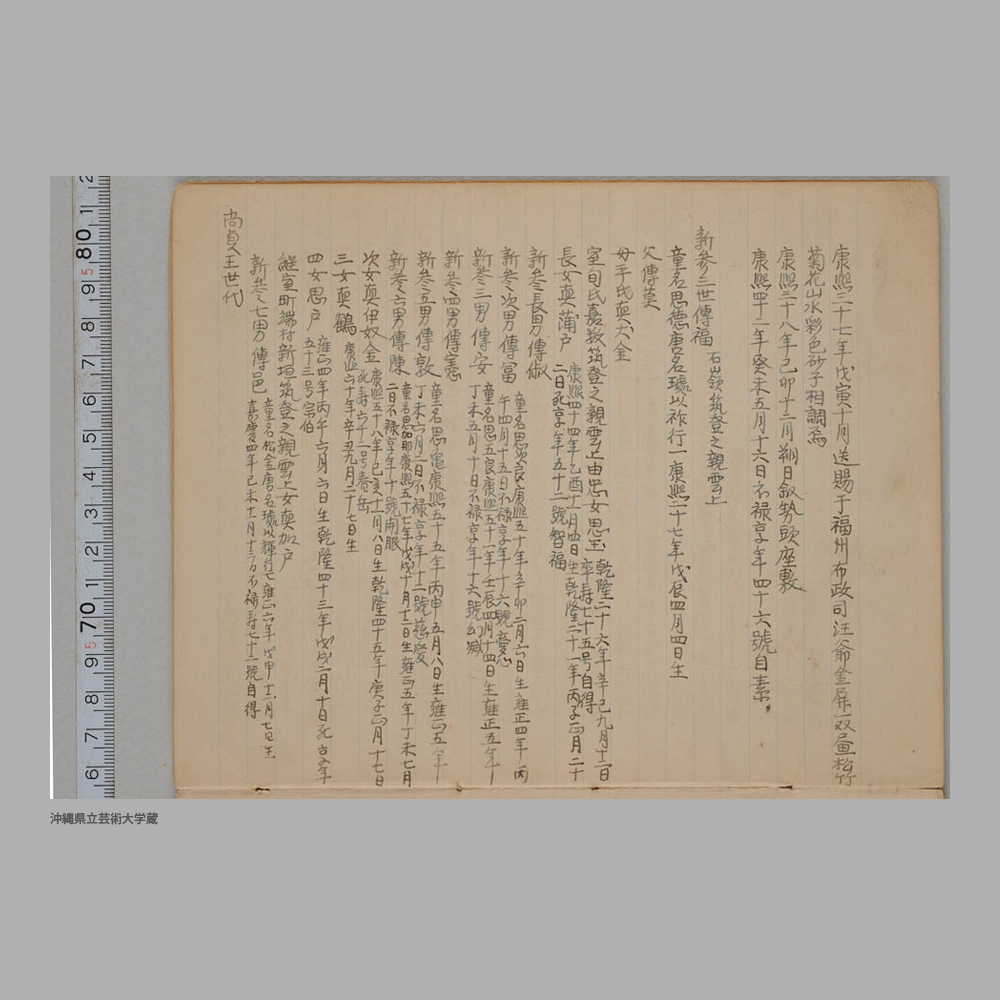 康熙三十七年戊寅十月送賜于福州布政司汪爺金屏一双画松竹
菊花山水彩色砂子相調焉
康熙三十八年己卯十二月朔日叙勢頭座敷
康熙四十二年癸未五月十六日不禄享年四十六號自素
新参三世傳福 石嶺筑登之親雲上
童名思徳唐名璩以祚行一康熙二十七年戊辰四月四日生
父傳莫
母平氏真大金
室旬氏嘉数筑登之親雲上由忠女思玉 乾隆二十六年辛巳九月十二日
卒寿七十五号自得
長女真蒲戸 康熙四十四年乙酉十一月四日生乾隆二十一年丙子正月二十
二日死享年五十二號智福
新参長男傳俶
新参次男傳冨 童名思次良康熙五十年辛卯二月六日生雍正四年丙
午四月十五日不禄享年十六號憂心
新参三男傳安 童名思五良康熙五十一年壬辰四月十四日生雍正五年
丁未五月十日不禄享年十六號幻滅
新参四男傳憲
新参五男傳敦 童名思亀康熙五十五年丙申五月八日生雍正五年
丁未六月二日不禄享年十二號慈慶
新参六男傳陳 童名思加那康熙五十七年戊戌十月十二日生雍正五年丁未七月
二日不禄享年十號南服
次女真伊奴金 康熙五十八年己亥十一月八日生乾隆四十五年庚子正月十七日
死寿六十二号春岳
三女真鶴 康熙六十年辛丑九月二十七日生
四女思戸 雍正四年丙午六月六日生乾隆四十三年戊戌二月十日死享年
五十三号宗伯
継室町端村新垣筑登之親雲上女真加戸
新参七男傳邑 童名松金唐名璩以輝行七雍正六年戊申十一月七日生
嘉慶四年己未十一月十二日不禄寿七十二號自得
尚貞王世代
沖縄県立芸術大学蔵
2
80 1
5
9 8 7 6 5 4 3 2 1
70
5
9 8 7 6